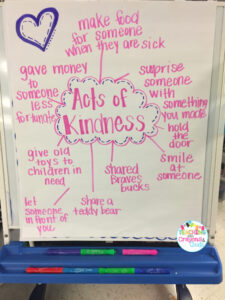 make food
for someone
when they are sick
gave money
to
someone
less
fortunate
surprise
someone
with
something
you made
Acts of
Kindness
hold
the
door
give old
toys to
children in
need
shared
Braves
bucks
smile
at
someone
let
someone
in front of
you
share a
teddy bear